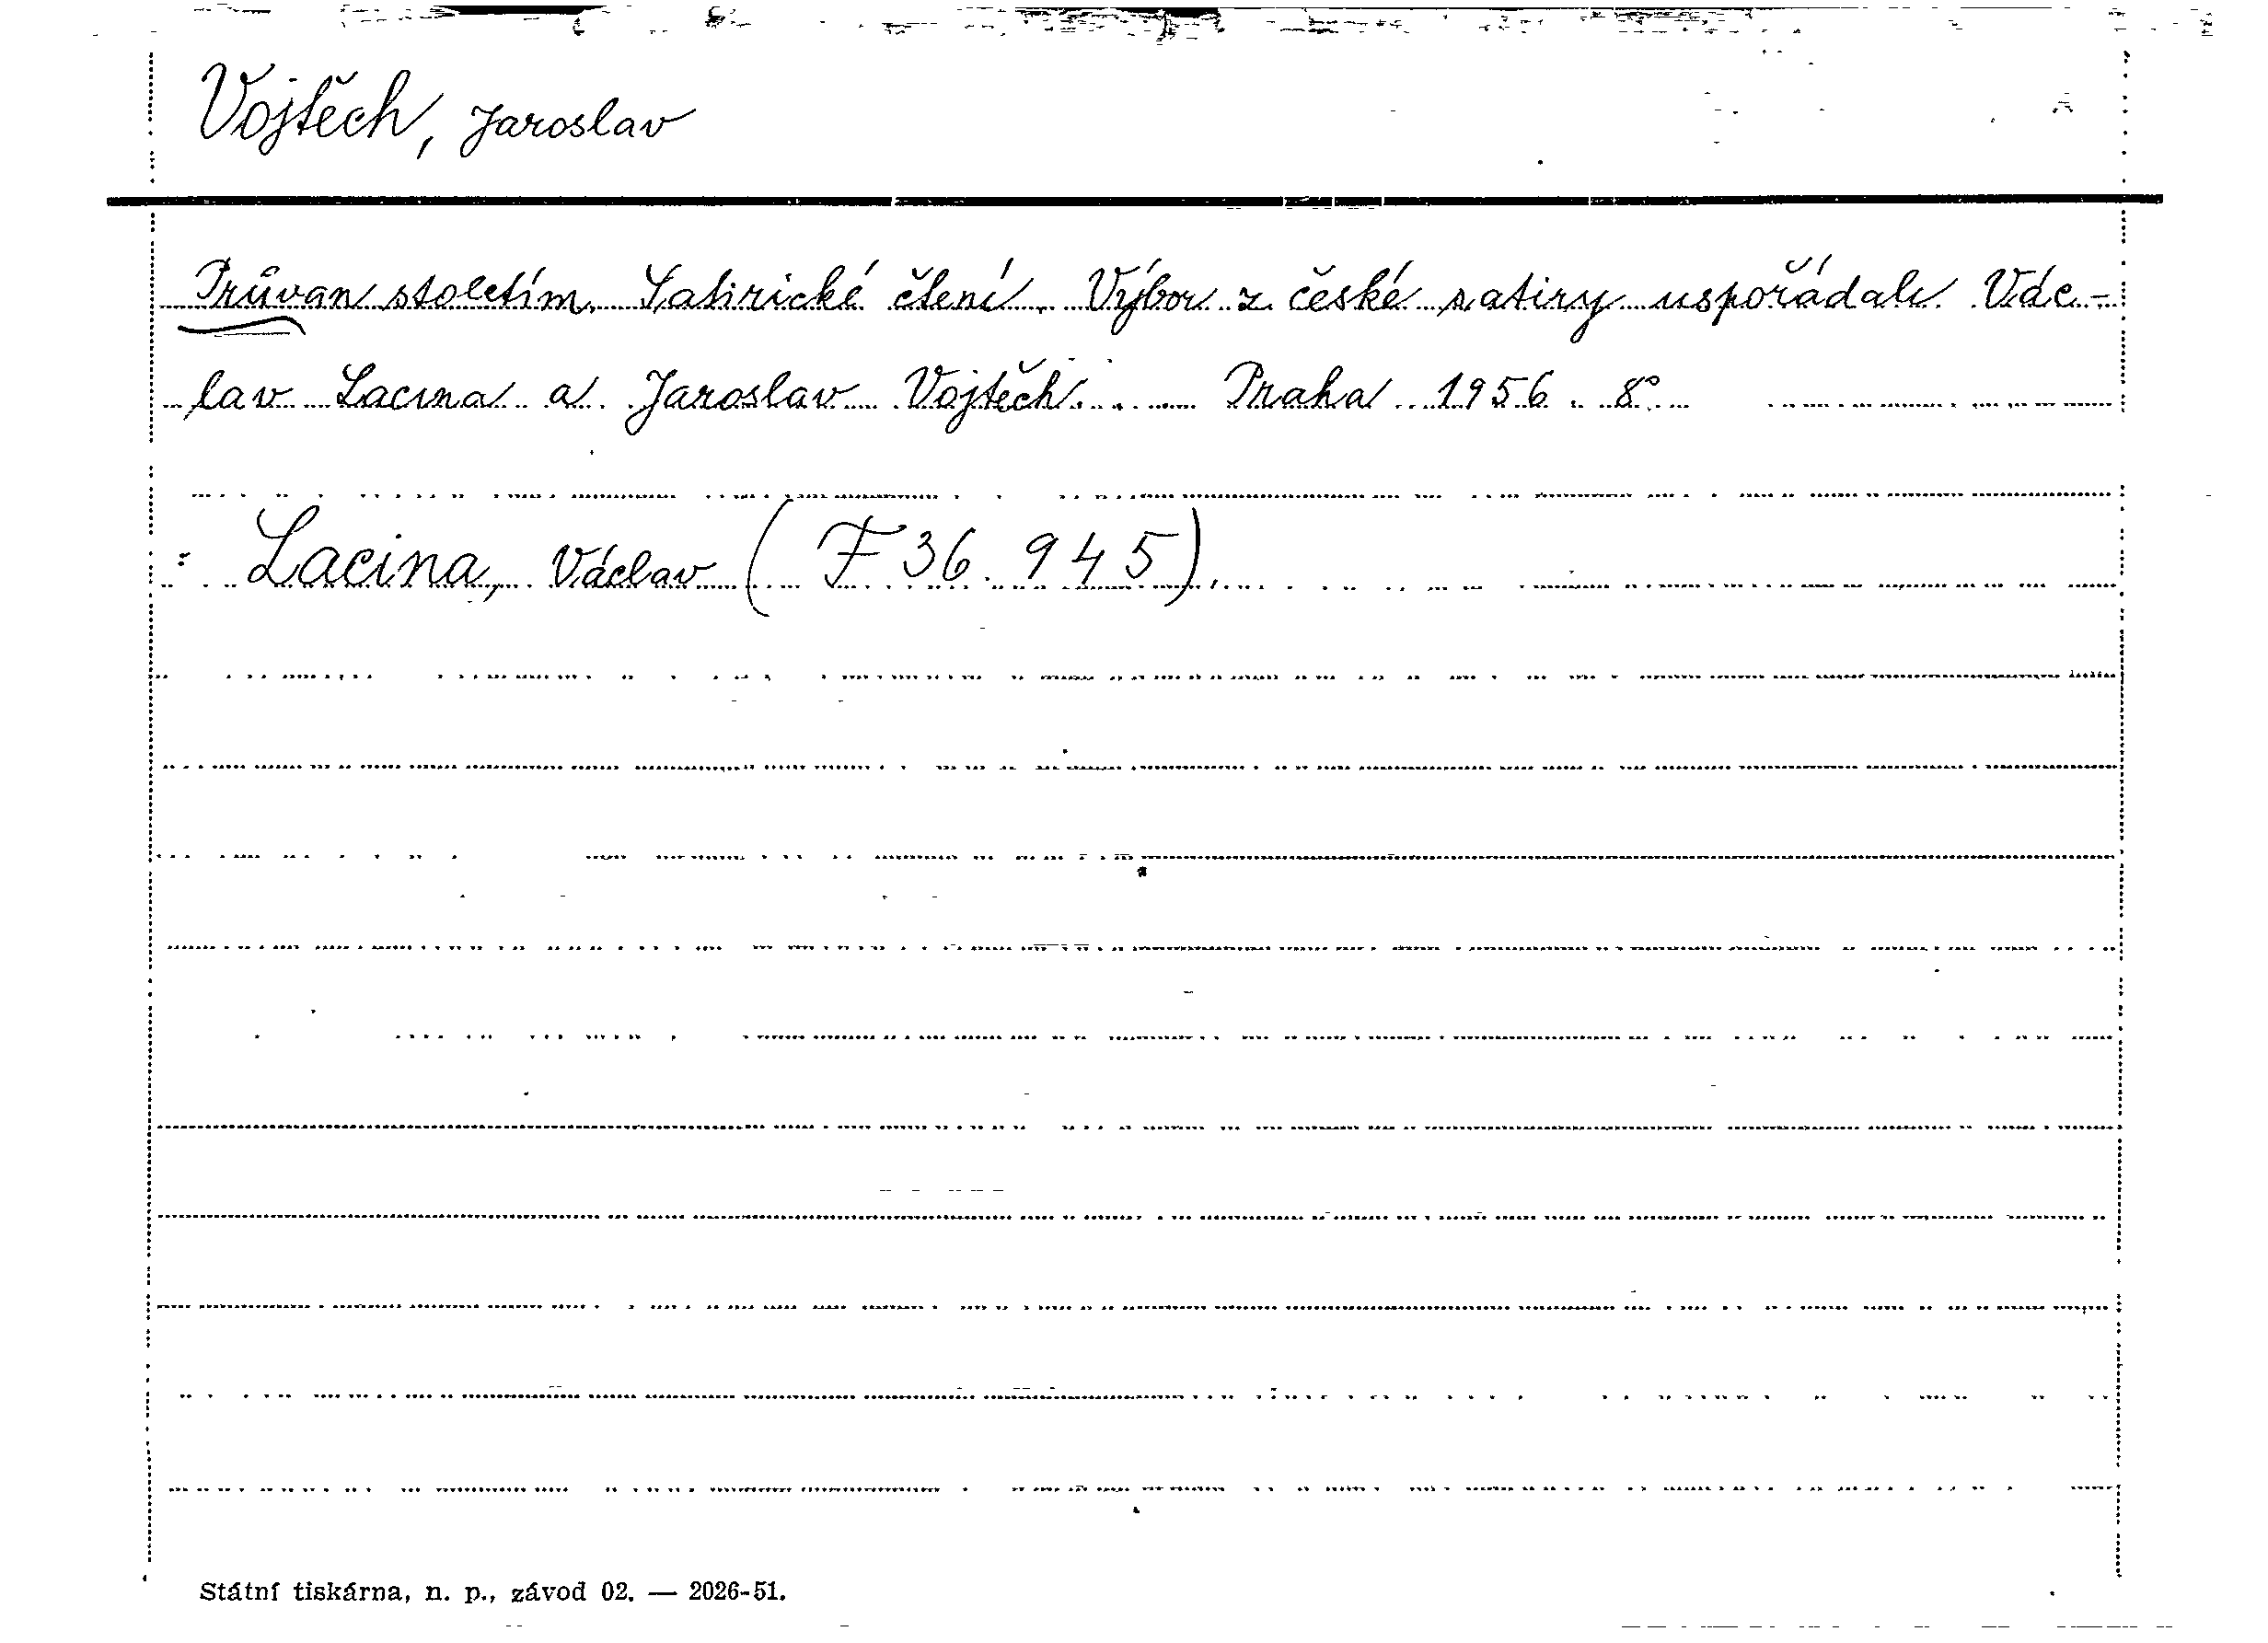 Vojtěch, Jaroslav
Průvan stoletím. Satirické čtení. Výbor z české satiry uspořádali Vác-
lav Lacina a Jaroslav Vojtěch... Praha 1956. 8°
: Lacina, Václav (F 36.945).
Státní tiskárna, n. p., závod 02. — 2026-51.